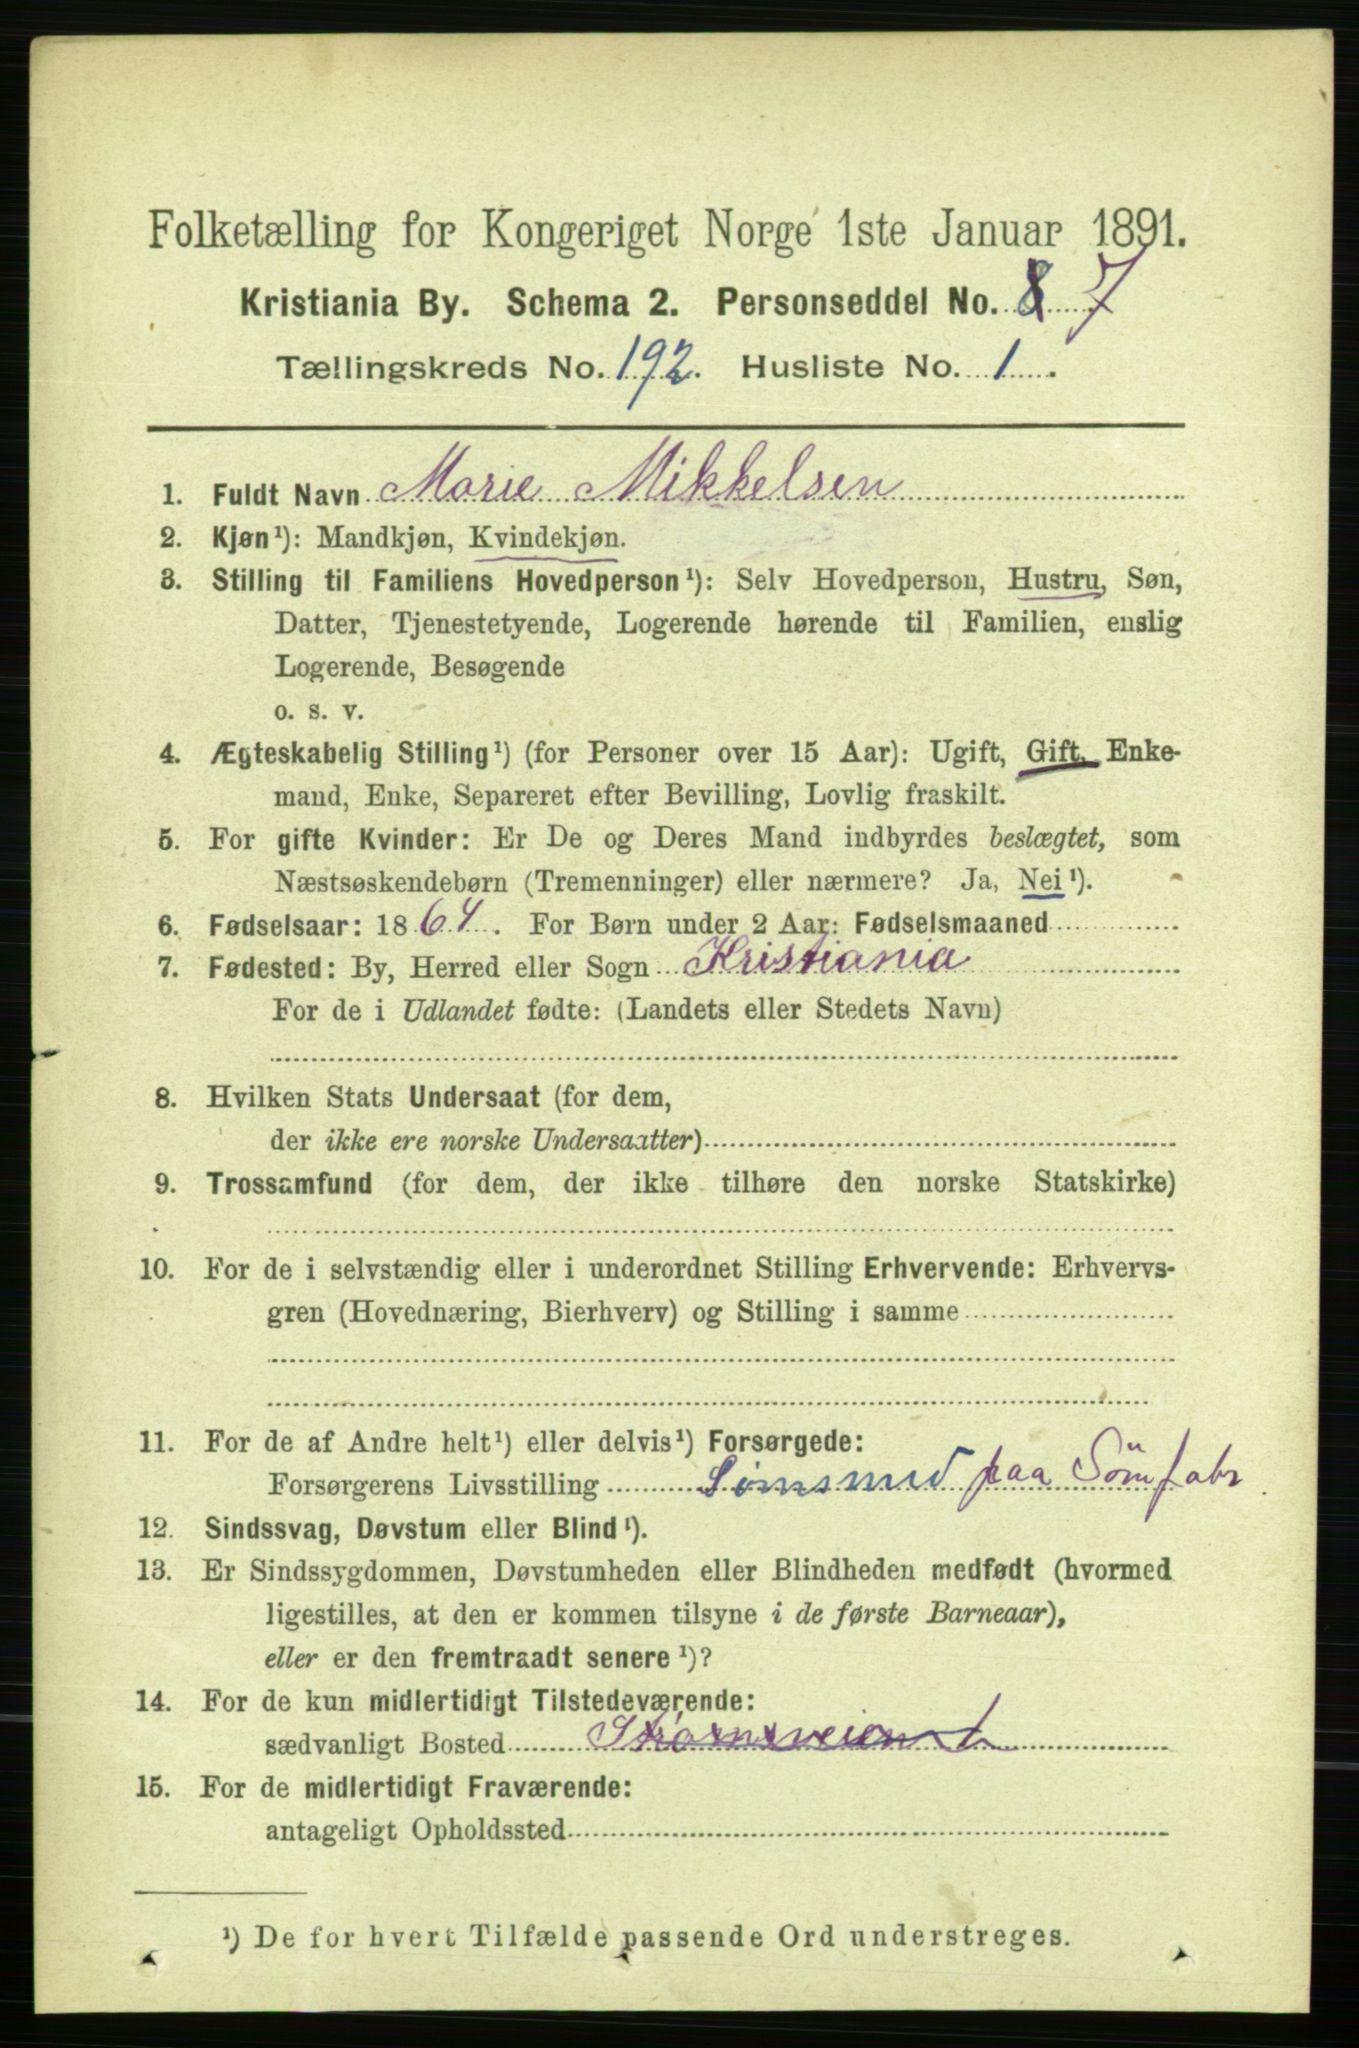 Folketælling for Kongeriget Norge 1ste Januar 1891.
Kristiania By. Schema 2. Personseddel No. 8 7
Tællingskreds No. 192. Husliste No. 1.
1. Fuldt Navn Marie Mikkelsen
2. Kjøn¹): Mandkjøn, Kvindekjøn.
3. Stilling til Familiens Hovedperson¹): Selv Hovedperson, Hustru, Søn,
Datter, Tjenestetyende, Logerende hørende til Familien, enslig
Logerende, Besøgende
o. s. v.
4. Ægteskabelig Stilling¹) (for Personer over 15 Aar): Ugift, Gift, Enke-
mand, Enke, Separeret efter Bevilling, Lovlig fraskilt.
5. For gifte Kvinder: Er De og Deres Mand indbyrdes beslægtet, som
Næstsøskendebørn (Tremenninger) eller nærmere? Ja, Nei¹).
6. Fødselsaar: 1864. For Børn under 2 Aar: Fødselsmaaned
7. Fødested: By, Herred eller Sogn Kristiania
For de i Udlandet fødte: (Landets eller Stedets Navn)
8. Hvilken Stats Undersaat (for dem,
der ikke ere norske Undersaatter)
9. Trossamfund (for dem, der ikke tilhøre den norske Statskirke)
10. For de i selvstændig eller i underordnet Stilling Erhvervende: Erhvervs-
gren (Hovednæring, Bierhverv) og Stilling i samme
11. For de af Andre helt¹) eller delvis¹) Forsørgede:
Forsørgerens Livsstilling Sømsmed paa Sömfabr
12. Sindssvag, Døvstum eller Blind¹).
13. Er Sindssygdommen, Døvstumheden eller Blindheden medfødt (hvormed
ligestilles, at den er kommen tilsyne i de første Barneaar),
eller er den fremtraadt senere¹)?
14. For de kun midlertidigt Tilstedeværende:
sædvanligt Bosted
15. For de midlertidigt Fraværende:
antageligt Opholdssted
¹) De for hvert Tilfælde passende Ord understreges.